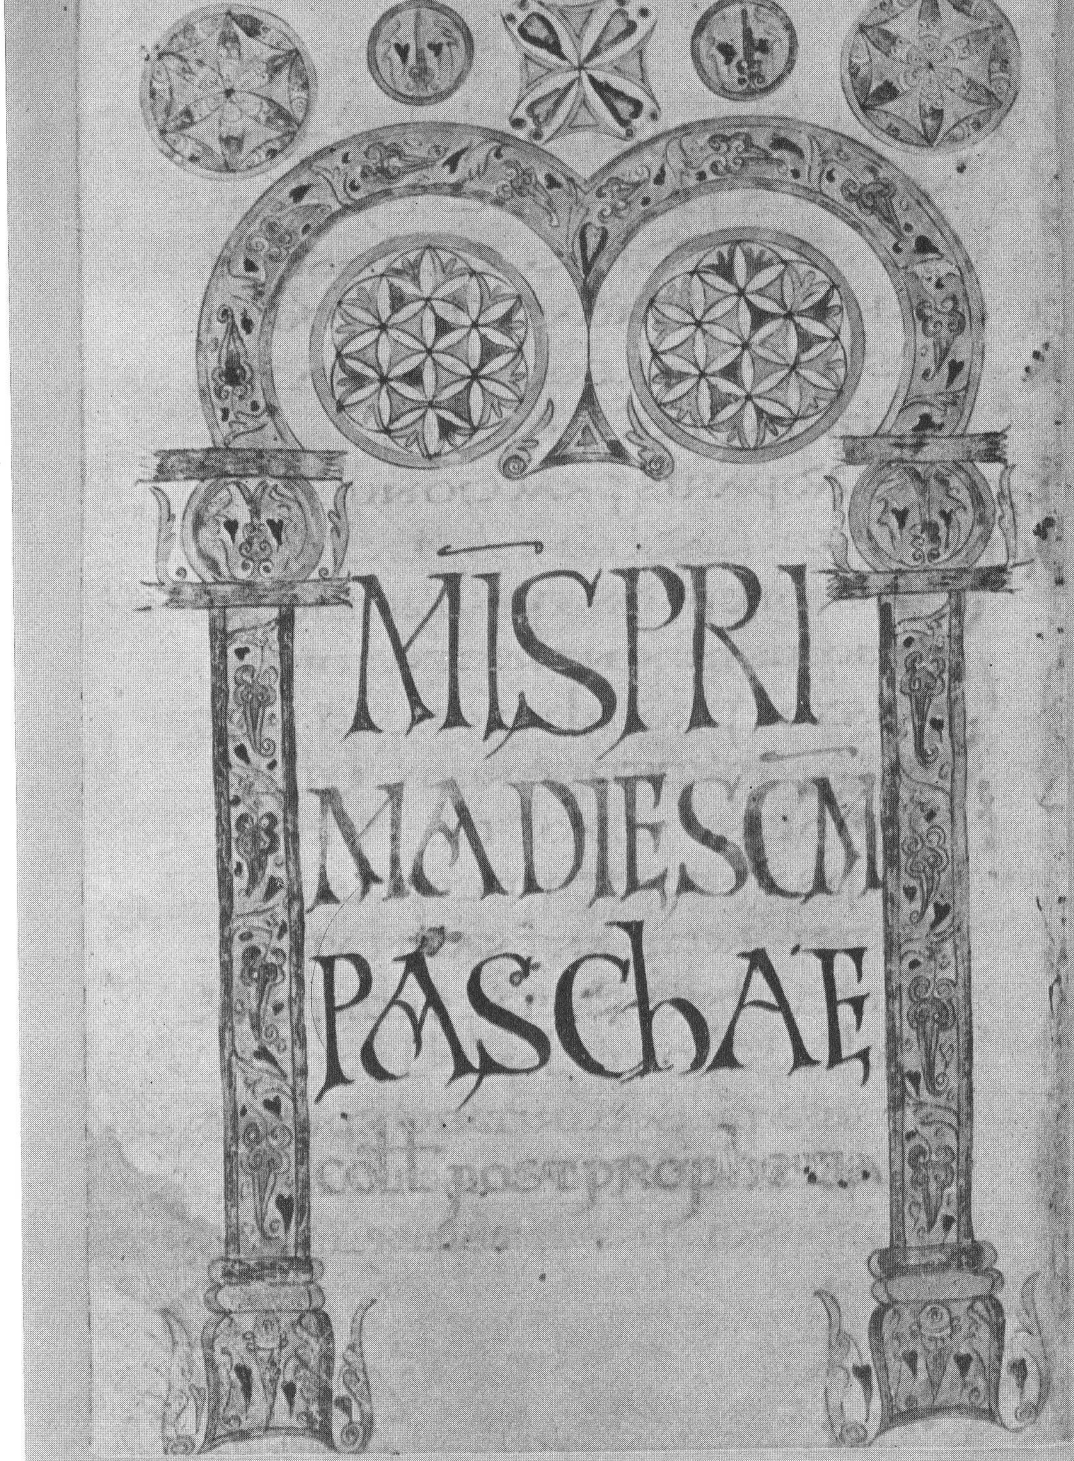 M̅I̅S PRI
MA DIE SC̅M̅
PASChAE
Coll post prophetia